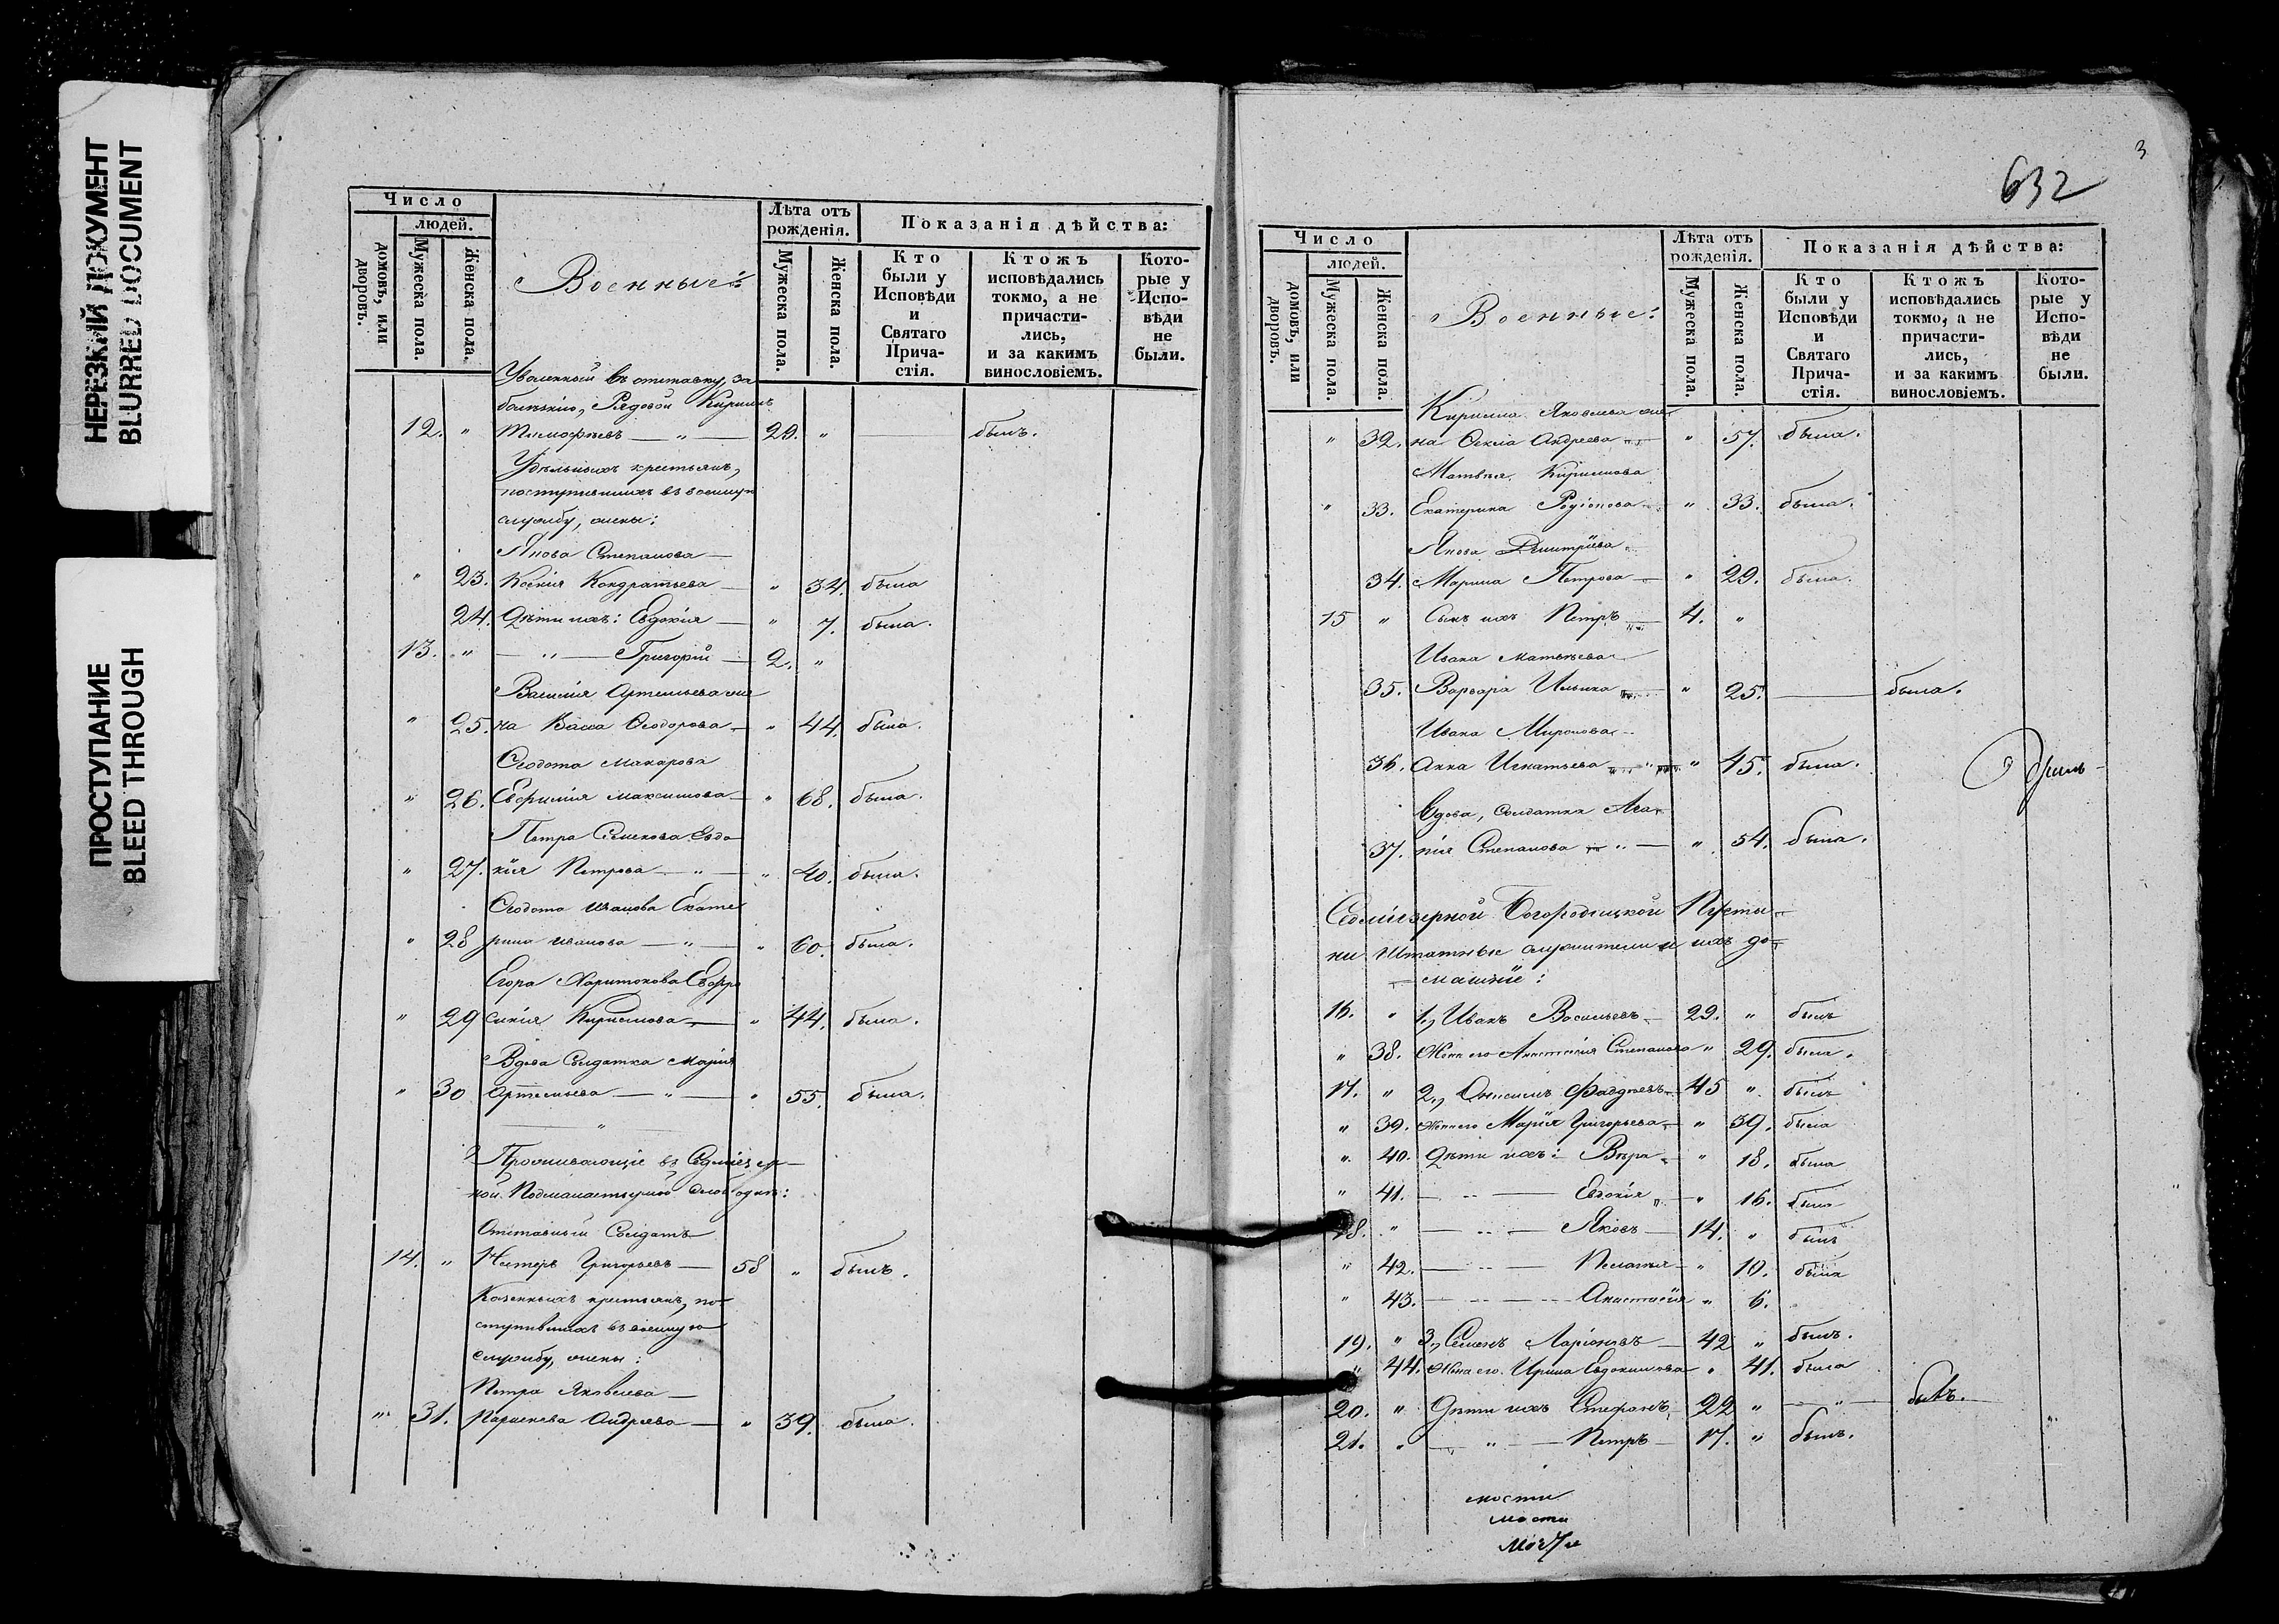 НЕРЕЗКИЙ ДОКУМЕНТ
BLURRED DOCUMENT
ПРОСТУПАНИЕ
BLEED THROUGH
Число
людей.
домовъ, или дворовъ.
Мужеска пола.
Женска пола.
Военные:
Лѣта отъ рожденія.
Мужеска пола.
Женска пола.
Показанія дѣйства:
Кто были у Исповѣди и Святаго Прича-стія.
Ктожъ исповѣдались токмо, а не причасти-лись, и за какимъ винословіемъ.
Кото-рые у Испо-вѣди не были.
Уволенный въ отставку, за
болѣзнію, Рядовой Кириллъ
12. " Тимофѣевъ — " — 29. " — былъ.
Удѣльныхъ крестьянъ,
поступившихъ въ военную
службу, жены:
Якова Степанова —
" 23. Ксенія Кондратьева — " 34. была
24. Дѣти ихъ: Евдокія — " 7. была.
13. " — " — Григорій — 2. "
Василія Артемьева же
" 25. на Васса Ѳеодорова — " 44. была.
Ѳеодота Макарова
" 26. Евфимія Максимова — " 68. была.
Петра Семенова Евдо
" 27. кія Петрова — " — " 40. была.
Ѳеодота Иванова Екате
" 28 рина Иванова — " — " 60. была.
Егора Харитонова Евфро
" 29 синія Кириллова — " 44. была.
Вдова Солдатка Марія
" 30 Артемьева — " — " 55. была.
"
Проживающіе въ Седміезер-
ной Подмонастырной слободкѣ:
Отставный Солдатъ
14. " Нестеръ Григорьевъ — 58 " былъ.
Казенныхъ крестьянъ, по-
ступившихъ въ военную
службу, жены:
Петра Яковлева —
" 31. Параскева Андреева — " 39. была.
3
632
Число
людей.
домовъ, или дворовъ.
Мужеска пола.
Женска пола.
Военные:
Лѣта отъ рожденія.
Мужеска пола.
Женска пола.
Показанія дѣйства:
Кто были у Исповѣди и Святаго Прича-стія.
Ктожъ исповѣдались токмо, а не причасти-лись, и за какимъ винословіемъ.
Кото-рые у Испо-вѣди не были.
Кирилла Яковлева же-
" 32. на Ѳекла Андреева — " 57. была.
Матвѣя Кириллова
" 33. Екатерина Родіонова — " 33. была.
Якова Дмитріева
34. Марина Петрова — " 29. была.
15 " Сынъ ихъ Петръ — 4. "
Ивана Матвѣева
35. Варвара Ильина — " 25. — была.
Ивана Миронова
36. Анна Игнатьева — " 45. была.
Вдова, Солдатка Ага-
37. пія Степанова — " — " 54. была.
Седміезерной Богородицкой Пусты-
ни Штатные служители и ихъ до-
машніе:
16. " 1., Иванъ Васильевъ — 29. " былъ
" 38. Жена его Анастасія Степанова " 29. была.
17. " 2., Онисимъ Фаддѣевъ — 45 " былъ
" 39. Жена его Марія Григорьева — " 39. была
" 40. Дѣти ихъ: Вѣра — " 18. была
" 41. — " — Евдокія — " 16. была
18. " — " — Яковъ — 14. " былъ
" 42. — " — Пелагія — " 10. была
" 43. — " — Анастасія " 6.
19. " 3., Семенъ Ларіоновъ — 42 " былъ.
" 44. Жена его Ирина Евдокимова " 41. была
20. " Дѣти ихъ Стефанъ — 22 " — " — былъ.
21. " — " — Петръ — 17. " былъ.